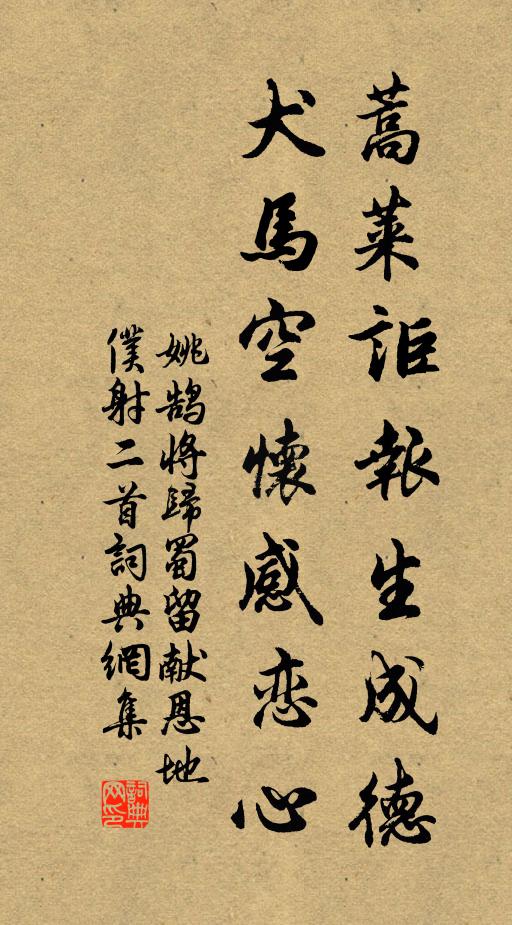 蒿萊詎報生成德
犬馬空懷感恋心
姚鵠将歸蜀留献恩地
僕射二首詞典網集
詞典
网印